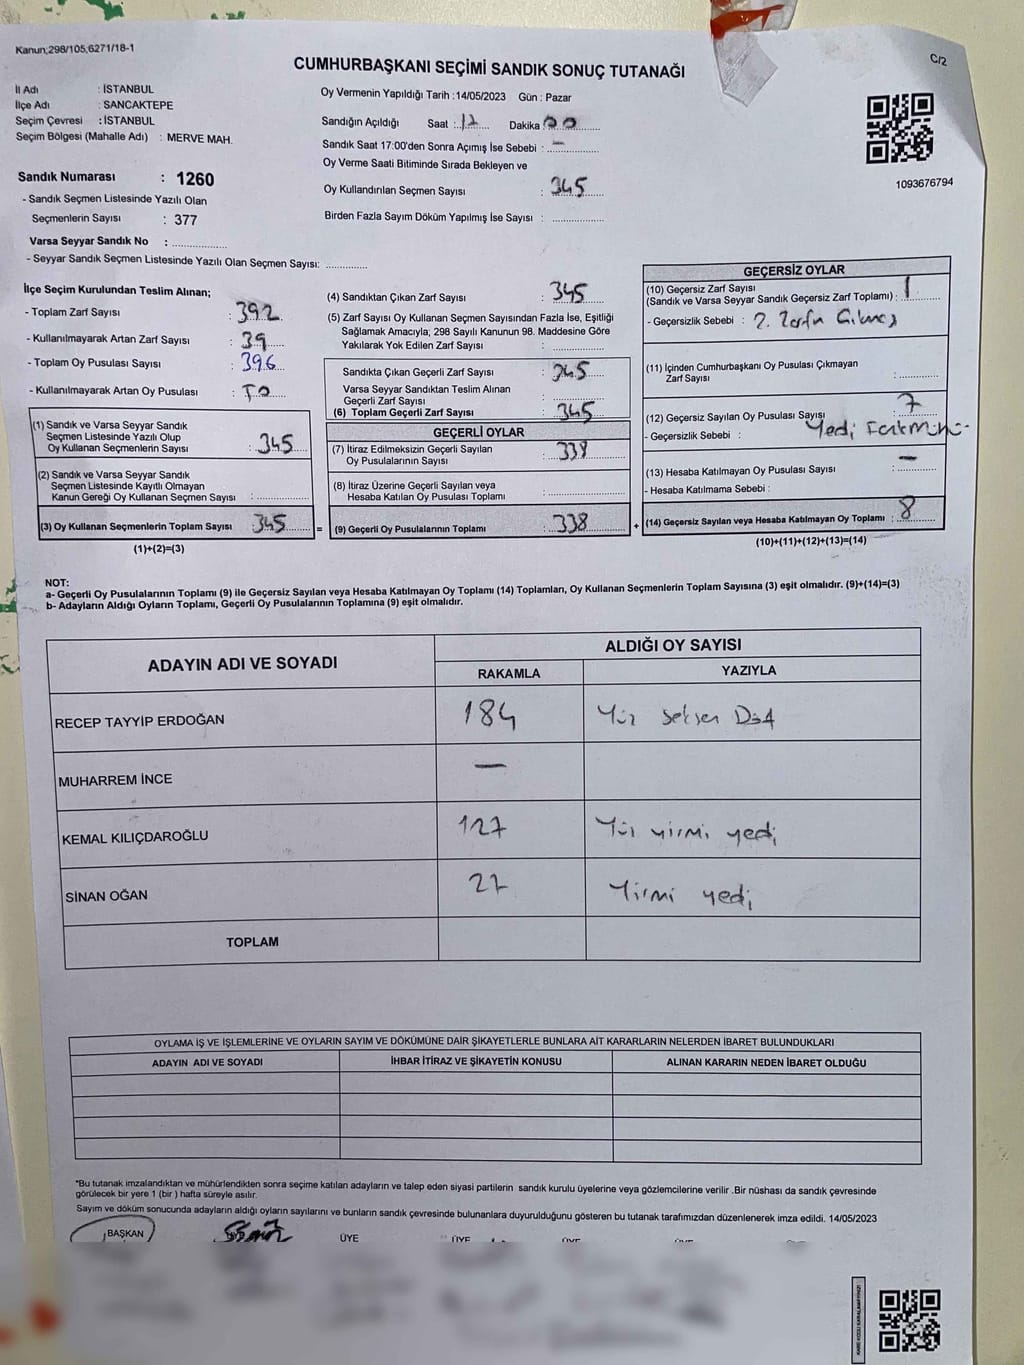 Kanun;298/105,6271/18-1
C/2
CUMHURBAŞKANI SEÇİMİ SANDIK SONUÇ TUTANAĞI
İl Adı : İSTANBUL
İlçe Adı : SANCAKTEPE
Seçim Çevresi : İSTANBUL
Seçim Bölgesi (Mahalle Adı) : MERVE MAH.
Sandık Numarası : 1260
- Sandık Seçmen Listesinde Yazılı Olan
Seçmenlerin Sayısı : 377
Varsa Seyyar Sandık No : ..................
- Seyyar Sandık Seçmen Listesinde Yazılı Olan Seçmen Sayısı: ..............
Oy Vermenin Yapıldığı Tarih :14/05/2023 Gün : Pazar
Sandığın Açıldığı Saat : 17 Dakika : 00
Sandık Saat 17:00'den Sonra Açmış İse Sebebi : —
Oy Verme Saati Bitiminde Sırada Bekleyen ve
Oy Kullandırılan Seçmen Sayısı : 345
Birden Fazla Sayım Döküm Yapılmış İse Sayısı : ..............
1093676794
İlçe Seçim Kurulundan Teslim Alınan;
- Toplam Zarf Sayısı : 392
- Kullanılmayarak Artan Zarf Sayısı : 39
- Toplam Oy Pusulası Sayısı : 396
- Kullanılmayarak Artan Oy Pusulası :
(1) Sandık ve Varsa Seyyar Sandık
Seçmen Listesinde Yazılı Olup
Oy Kullanan Seçmenlerin Sayısı : 345
(2) Sandık ve Varsa Seyyar Sandık
Seçmen Listesinde Kayıtlı Olmayan
Kanun Gereği Oy Kullanan Seçmen Sayısı : ..............
(3) Oy Kullanan Seçmenlerin Toplam Sayısı : 345 =
(1)+(2)=(3)
(4) Sandıktan Çıkan Zarf Sayısı : 345
(5) Zarf Sayısı Oy Kullanan Seçmen Sayısından Fazla İse, Eşitliği
Sağlamak Amacıyla; 298 Sayılı Kanunun 98. Maddesine Göre
Yakılarak Yok Edilen Zarf Sayısı : ..............
Sandıkta Çıkan Geçerli Zarf Sayısı : 345
Varsa Seyyar Sandıktan Teslim Alınan
Geçerli Zarf Sayısı : ..............
(6) Toplam Geçerli Zarf Sayısı : 345
GEÇERLİ OYLAR
(7) İtiraz Edilmeksizin Geçerli Sayılan
Oy Pusulalarının Sayısı : 338
(8) İtiraz Üzerine Geçerli Sayılan veya
Hesaba Katılan Oy Pusulası Toplamı : ..............
(9) Geçerli Oy Pusulalarının Toplamı : 338 +
GEÇERSİZ OYLAR
(10) Geçersiz Zarf Sayısı
(Sandık ve Varsa Seyyar Sandık Geçersiz Zarf Toplamı) : 1
- Geçersizlik Sebebi :
(11) İçinden Cumhurbaşkanı Oy Pusulası Çıkmayan
Zarf Sayısı : ..............
(12) Geçersiz Sayılan Oy Pusulası Sayısı 7
- Geçersizlik Sebebi : Yedi
(13) Hesaba Katılmayan Oy Pusulası Sayısı : —
- Hesaba Katılmama Sebebi :
(14) Geçersiz Sayılan veya Hesaba Katılmayan Oy Toplamı : 8
(10)+(11)+(12)+(13)=(14)
NOT:
a- Geçerli Oy Pusulalarının Toplamı (9) ile Geçersiz Sayılan veya Hesaba Katılmayan Oy Toplamı (14) Toplamları, Oy Kullanan Seçmenlerin Toplam Sayısına (3) eşit olmalıdır. (9)+(14)=(3)
b- Adayların Aldığı Oyların Toplamı, Geçerli Oy Pusulalarının Toplamına (9) eşit olmalıdır.
ADAYIN ADI VE SOYADI
ALDIĞI OY SAYISI
RAKAMLA YAZIYLA
RECEP TAYYİP ERDOĞAN 184 Yüz seksen Dört
MUHARREM İNCE —
KEMAL KILIÇDAROĞLU 127 Yüz yirmi yedi
SİNAN OĞAN 27 Yirmi yedi
TOPLAM
OYLAMA İŞ VE İŞLEMLERİNE VE OYLARIN SAYIM VE DÖKÜMÜNE DAİR ŞİKAYETLERLE BUNLARA AİT KARARLARIN NELERDEN İBARET BULUNDUKLARI
ADAYIN ADI VE SOYADI İHBAR İTİRAZ VE ŞİKAYETİN KONUSU ALINAN KARARIN NEDEN İBARET OLDUĞU
*Bu tutanak imzalandıktan ve mühürlendikten sonra seçime katılan adayların ve talep eden siyasi partilerin sandık kurulu üyelerine veya gözlemcilerine verilir .Bir nüshası da sandık çevresinde
görülecek bir yere 1 (bir ) hafta süreyle asılır.
Sayım ve döküm sonucunda adayların aldığı oyların sayılarını ve bunların sandık çevresinde bulunanlara duyurulduğunu gösteren bu tutanak tarafımızdan düzenlenerek imza edildi. 14/05/2023
BAŞKAN ÜYE ÜYE ÜYE ÜYE